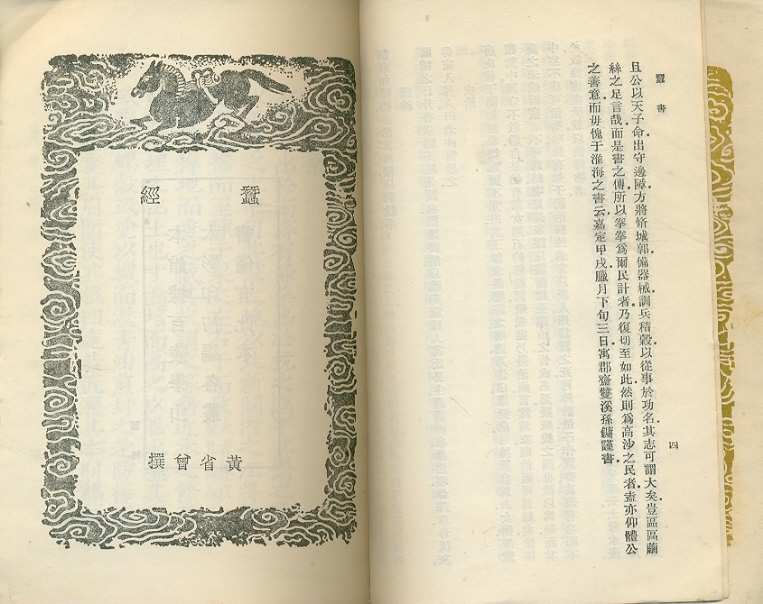 蠶書
四
且公以天子命出守邊障方將脩城郭備器械訓兵積穀以從事於功名其志可謂大矣豈區區繭
絲之足言哉而是書之傳所以拳拳爲爾民計者乃復切至如此然則爲高沙之民者盍亦仰體公
之善意而毋愧于淮海之書云嘉定甲戌臘月下旬三日寓郡齋雙溪孫鏞謹書
蠶經
黃省曾撰